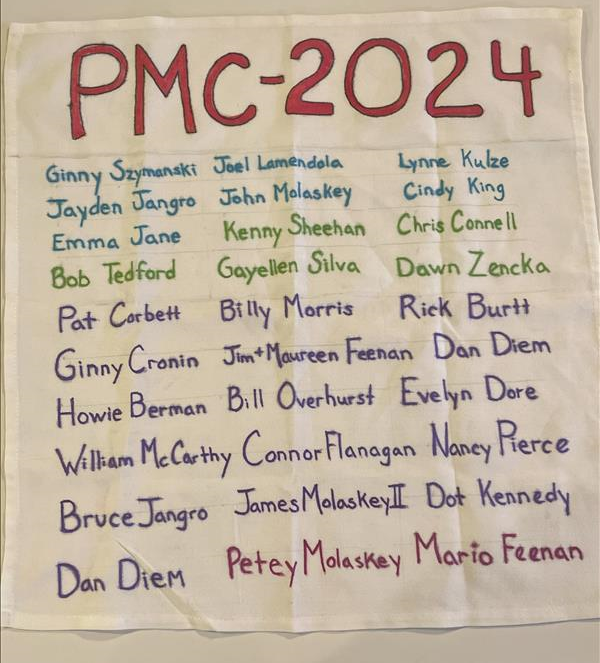 PMC-2024
Ginny Szymanski Joel Lamendola Lynne Kulze
Jayden Jangro John Molaskey Cindy King
Emma Jane Kenny Sheehan Chris Connell
Bob Tedford Gayellen Silva Dawn Zencka
Pat Corbett Billy Morris Rick Burtt
Ginny Cronin Jim+Maureen Feenan Dan Diem
Howie Berman Bill Overhurst Evelyn Dore
William McCarthy Connor Flanagan Nancy Pierce
Bruce Jangro James Molaskey II Dot Kennedy
Dan Diem Petey Molaskey Mario Feenan